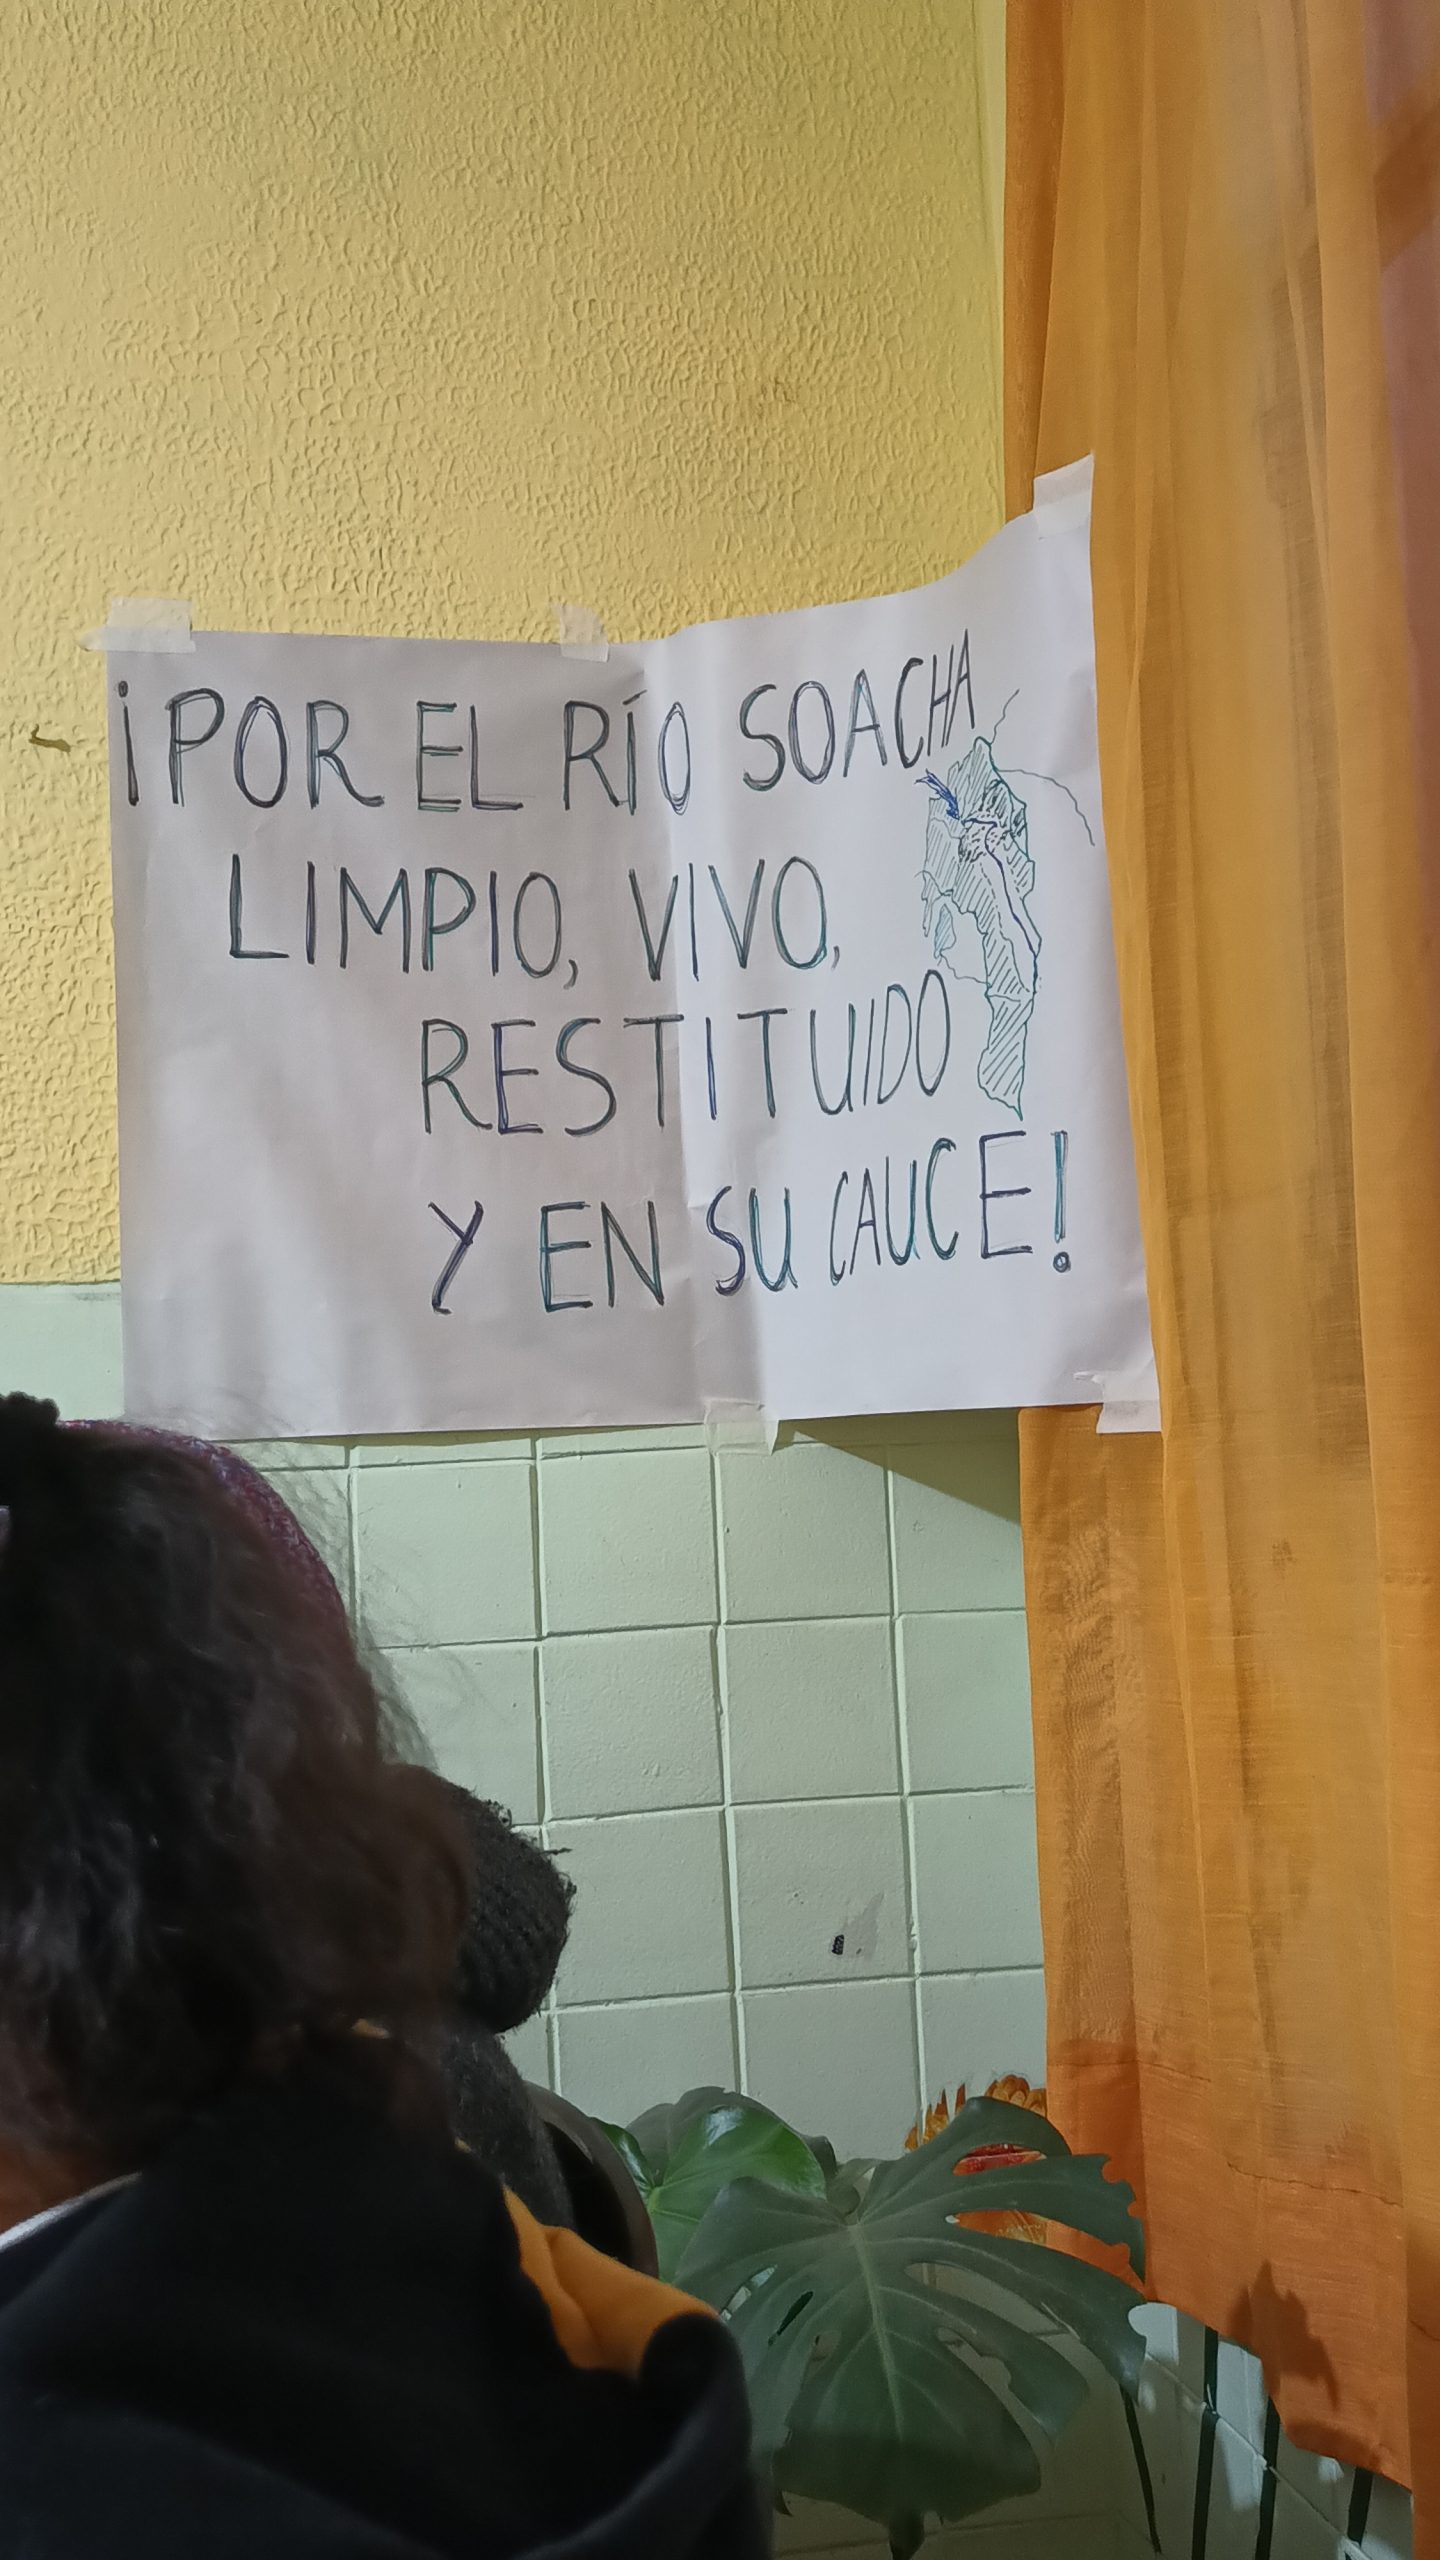 ¡POR EL RÍO SOACHA
LIMPIO, VIVO,
RESTITUIDO
Y EN SU CAUCE!